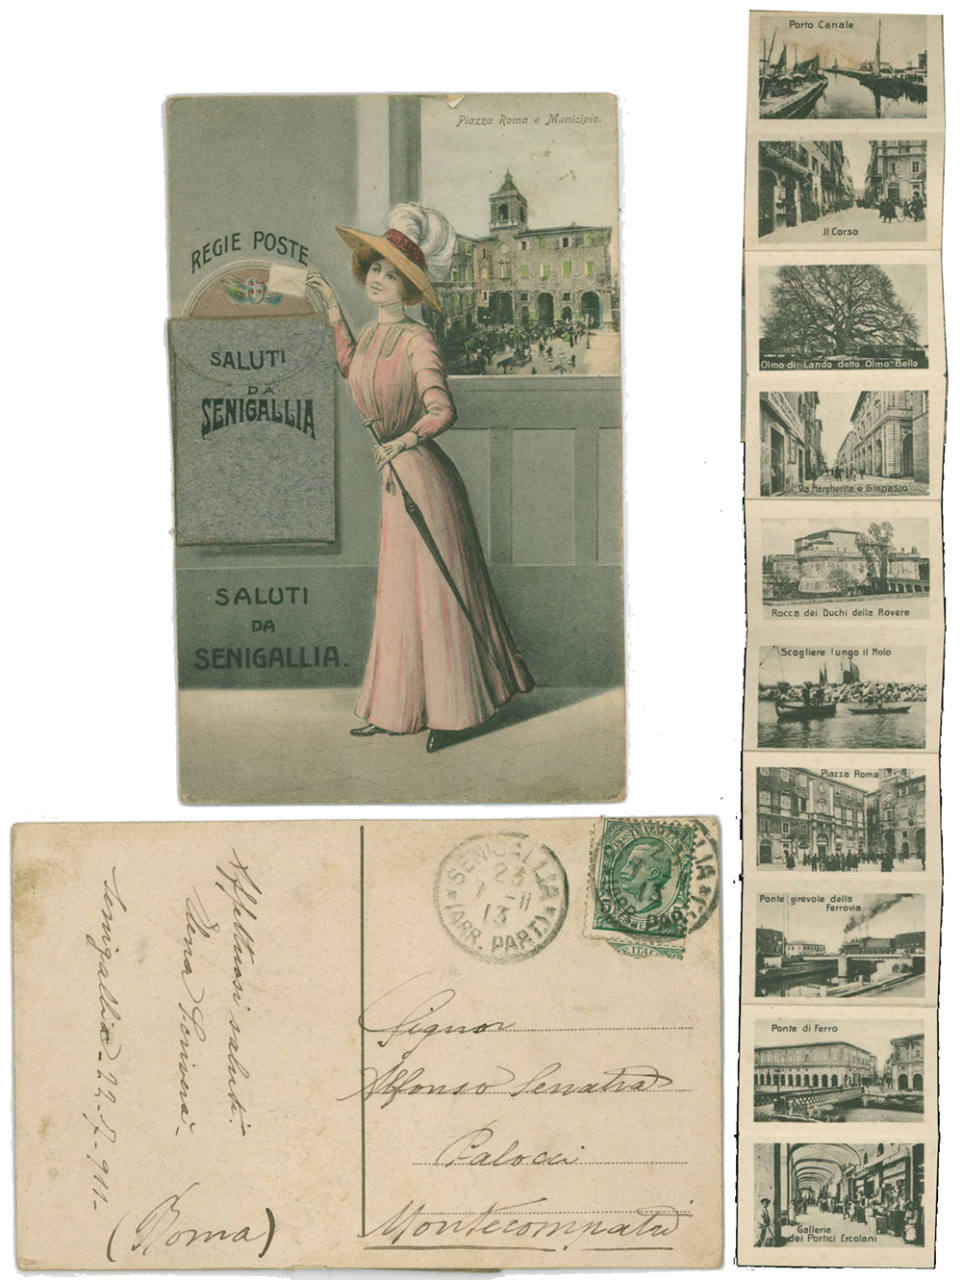 Piazza Roma e Municipio.
REGIE POSTE
SALUTI
DA
SENIGALLIA
SALUTI
DA
SENIGALLIA.
Porto Canale
Il Corso
Olmo di Lando detto Olmo Bello
Via Margherita e Ginnasio
Rocca dei Duchi della Rovere
Scogliere lungo il Molo
Piazza Roma
Ponte girevole della
Ferrovia
Ponte di Ferro
Galleria
dei Portici Ercolani
Affettuosi saluti.
Elena
Senigallia - 22-7-911-
SENIGALLIA
23
7-11
13
(ARR. PART.)
POSTE ITALIANE
Signor
Alfonso Senatra
Palocci
Montecompatri
(Roma)